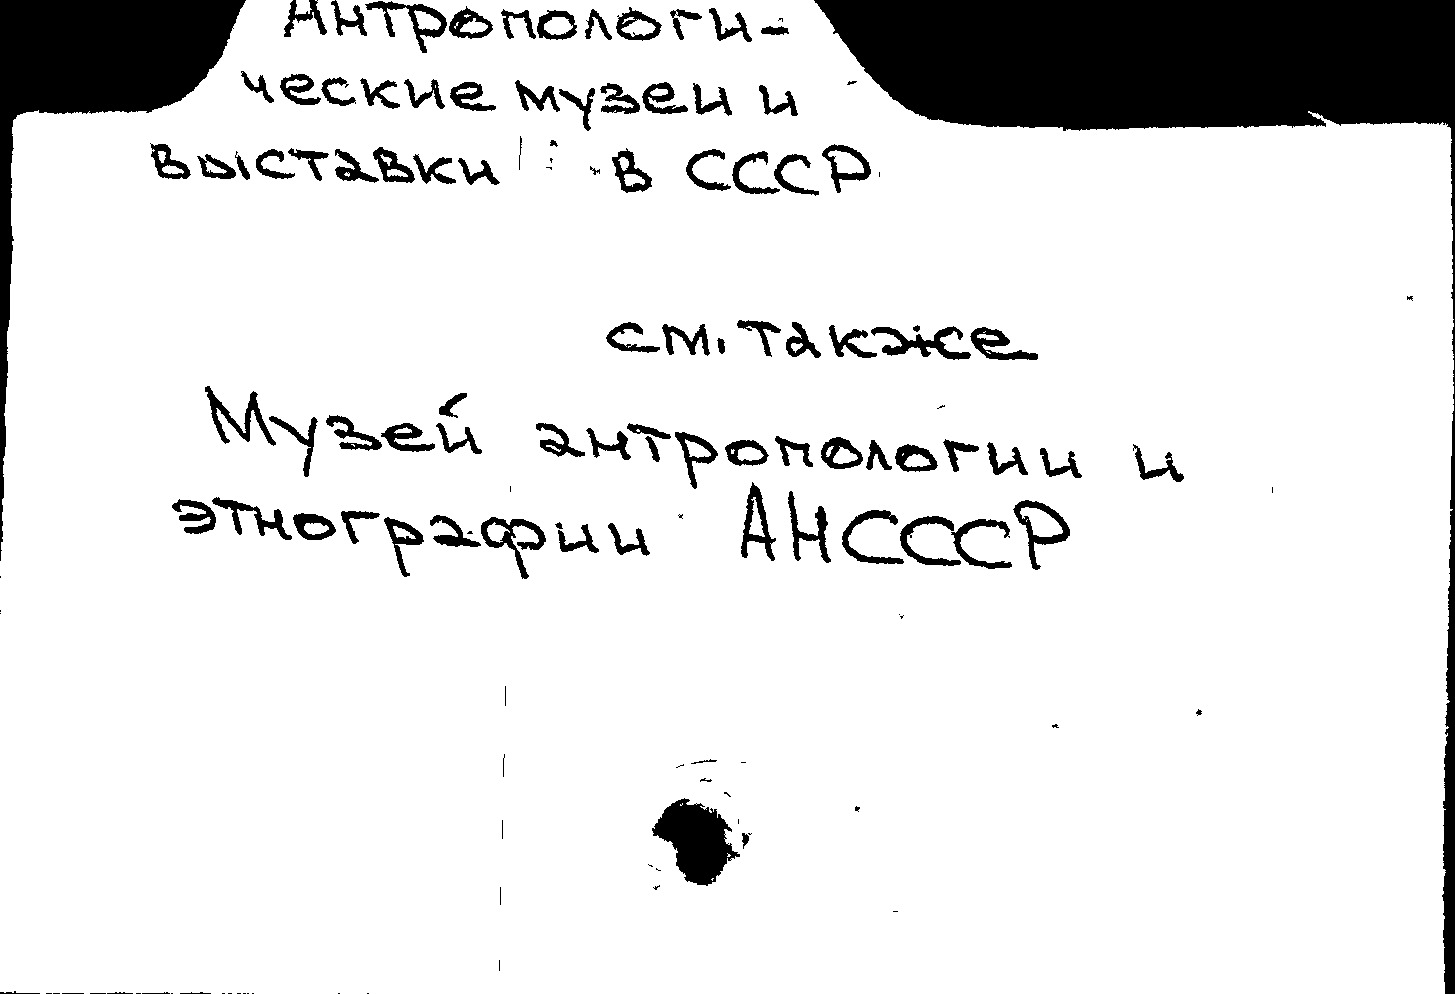 Антропологи-
ческие музеи и
выставки в СССР
см. также
Музей антропологии и
этнографии АНСССР